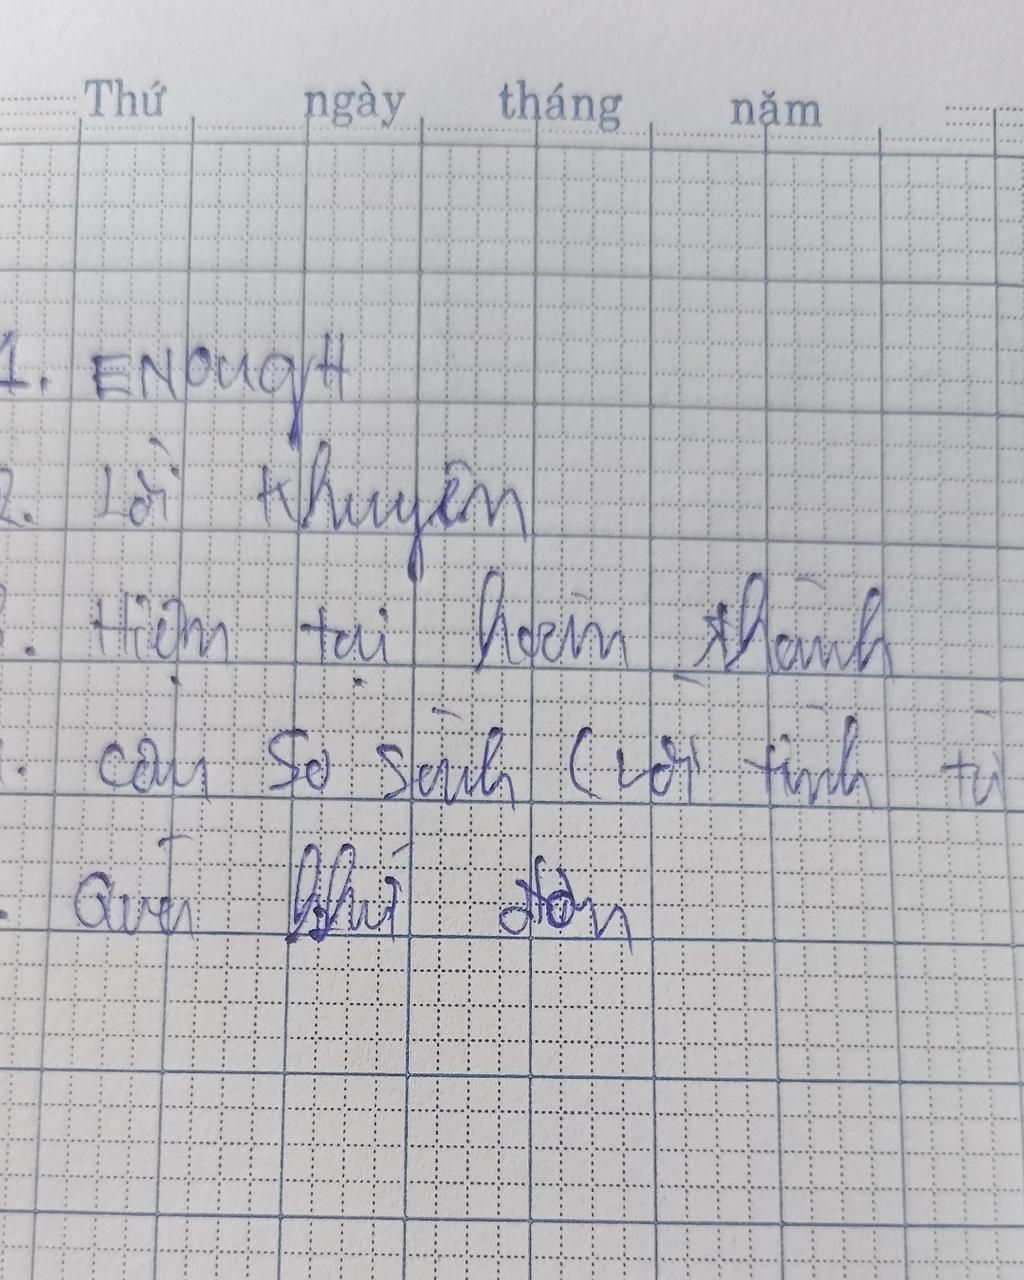 Thứ ngày tháng năm
1. ENOUGH
2. Lời khuyên
3. Hiện tại hoàn thành
. câu so sánh (với tính từ
. Quá khứ đơn